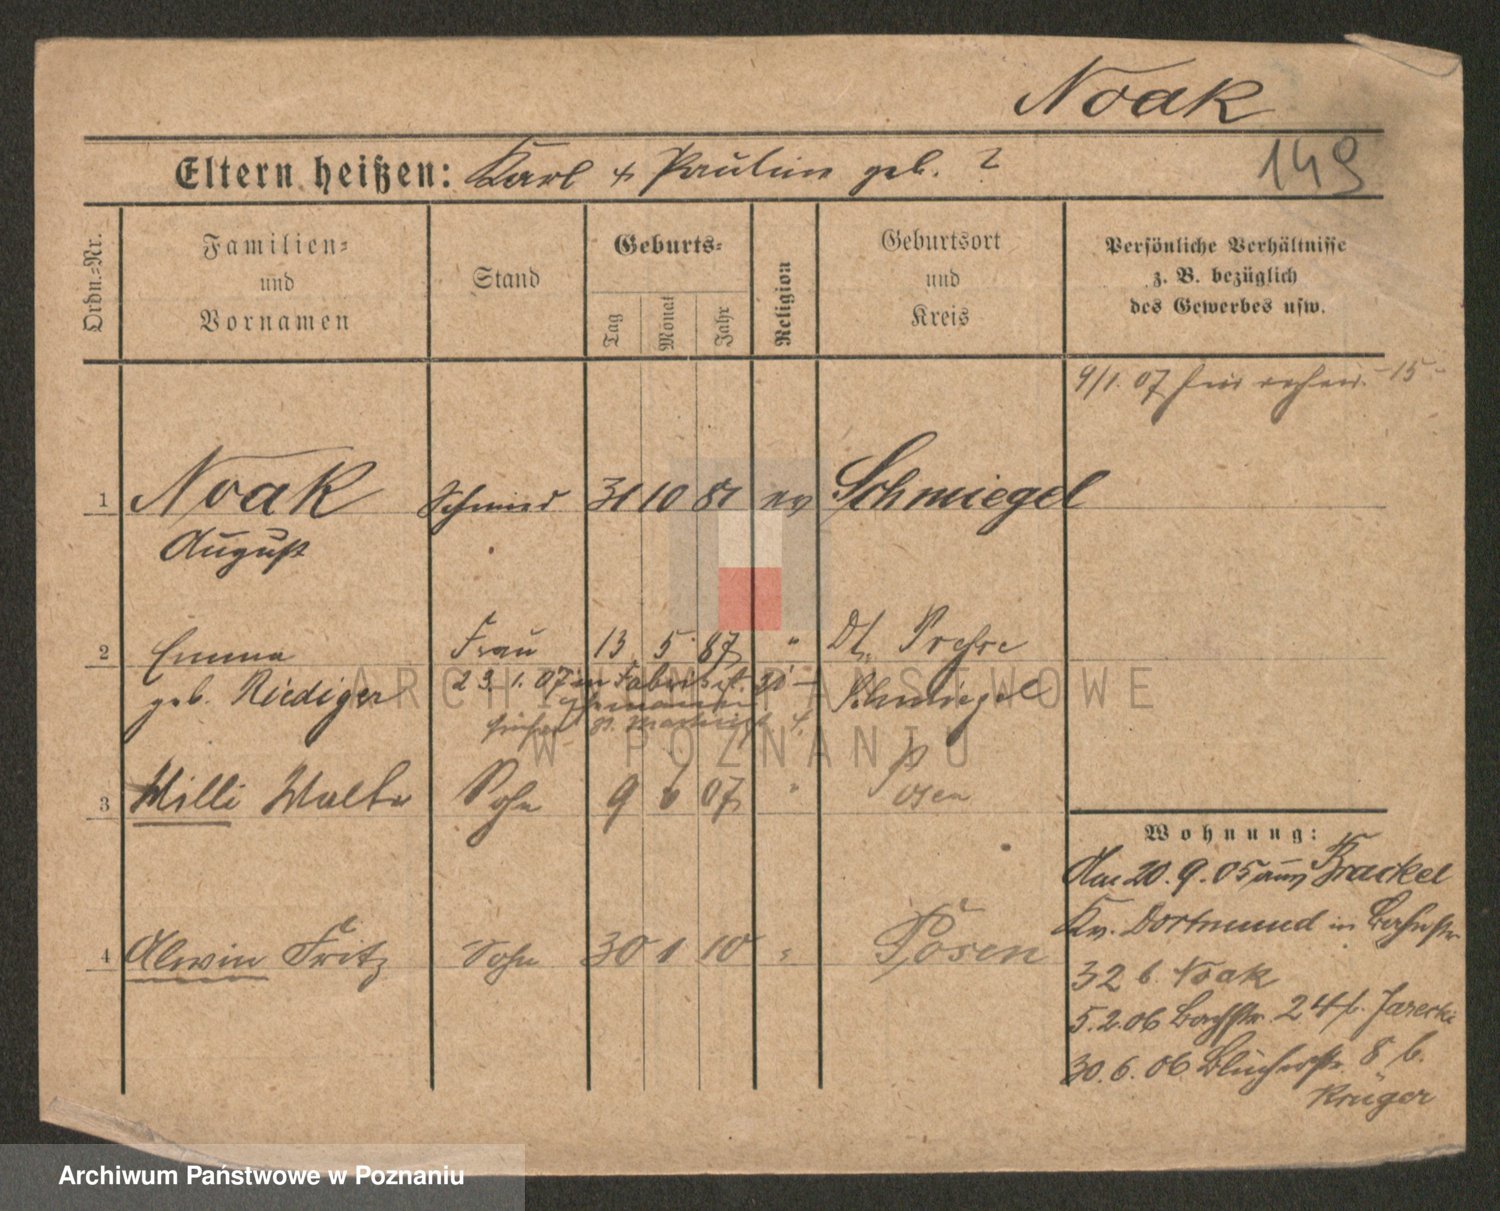 Noak
149
Eltern heißen: Karl + Paulin geb. ?
Ordn.=Nr.
Familien=
und
Vornamen
Stand
Geburts=
Tag
Monat
Jahr
Religion
Geburtsort
und
Kreis
Persönliche Verhältnisse
z. B. bezüglich
des Gewerbes usw.
9/1. 07 15
1 Noak Schmied 31 10 81 ev Schmiegel
August
2 Emma Frau 13 5 87 " Dt. Presse
geb. Riediger 23.1.07 in Fabrik Schmiegel
3 Willi Walter Sohn 9 6 07 " Posen
4 Alwin Fritz Sohn 30 1 10 " Posen
Wohnung:
Am 20.9.05 aus Brackel
Kr. Dortmund in
32 b. Noak
5.2.06 Bachstr. 24 b. Jarecki
30.6.06 Blücherstr. 8 b.
Krüger
ARCHIWUM PAŃSTWOWE
W POZNANIU
Archiwum Państwowe w Poznaniu